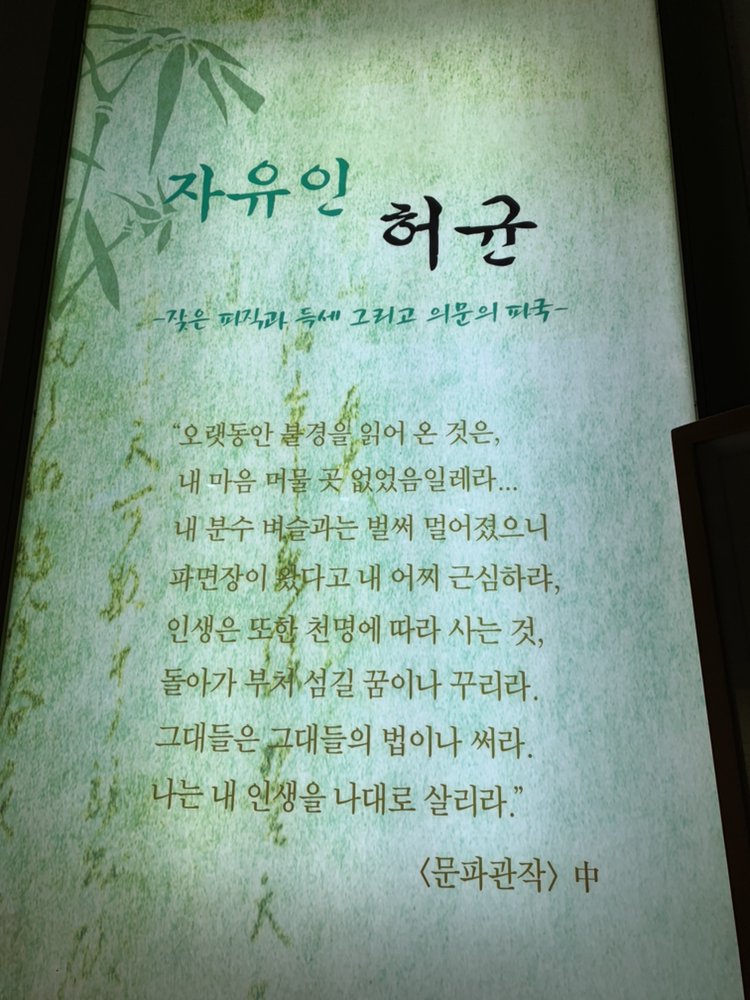 자유인
허균
-잦은 파직과 득세 그리고 의문의 파국-
“오랫동안 불경을 읽어 온 것은,
내 마음 머물 곳 없었음일레라...
내 분수 벼슬과는 벌써 멀어졌으니
파면장이 왔다고 내 어찌 근심하랴,
인생은 또한 천명에 따라 사는 것,
돌아가 부처 섬길 꿈이나 꾸리라.
그대들은 그대들의 법이나 써라.
나는 내 인생을 나대로 살리라.”
〈문파관작〉 中